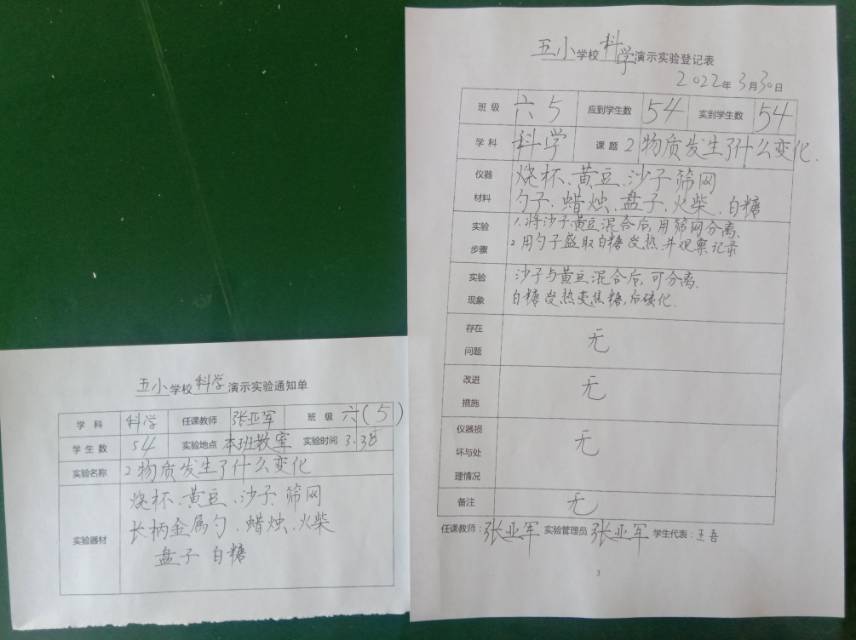 五小学校科学演示实验通知单
学科 科学 任课教师 张亚军 班级 六(5)
学生数 54 实验地点 本班教室 实验时间 3.30
实验名称 2物质发生了什么变化
实验器材 烧杯、黄豆、沙子、筛网
长柄金属勺、蜡烛、火柴
盘子 白糖
五小学校科学演示实验登记表
2022年3月30日
班级 六5 应到学生数 54 实到学生数 54
学科 科学 课题 2物质发生了什么变化.
仪器材料 烧杯、黄豆、沙子 筛网
勺子、蜡烛、盘子、火柴、白糖
实验步骤 1.将沙子、黄豆混合后,用筛网分离.
2.用勺子盛取白糖 加热 并观察记录
实验现象 沙子与黄豆混合后,可分离.
白糖加热变焦糖,后碳化.
存在问题 无
改进措施 无
仪器损坏与处理情况 无
备注 无
任课教师:张亚军 实验管理员 张亚军 学生代表:王
3